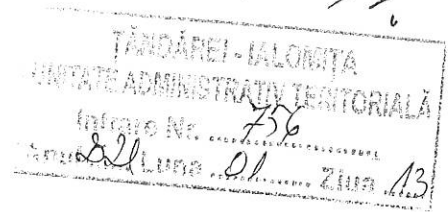 ȚĂNDĂREI - IALOMIȚA
UNITATE ADMINISTRATIV TERITORIALĂ
Intrare Nr. 756
Luna 01 Ziua 13